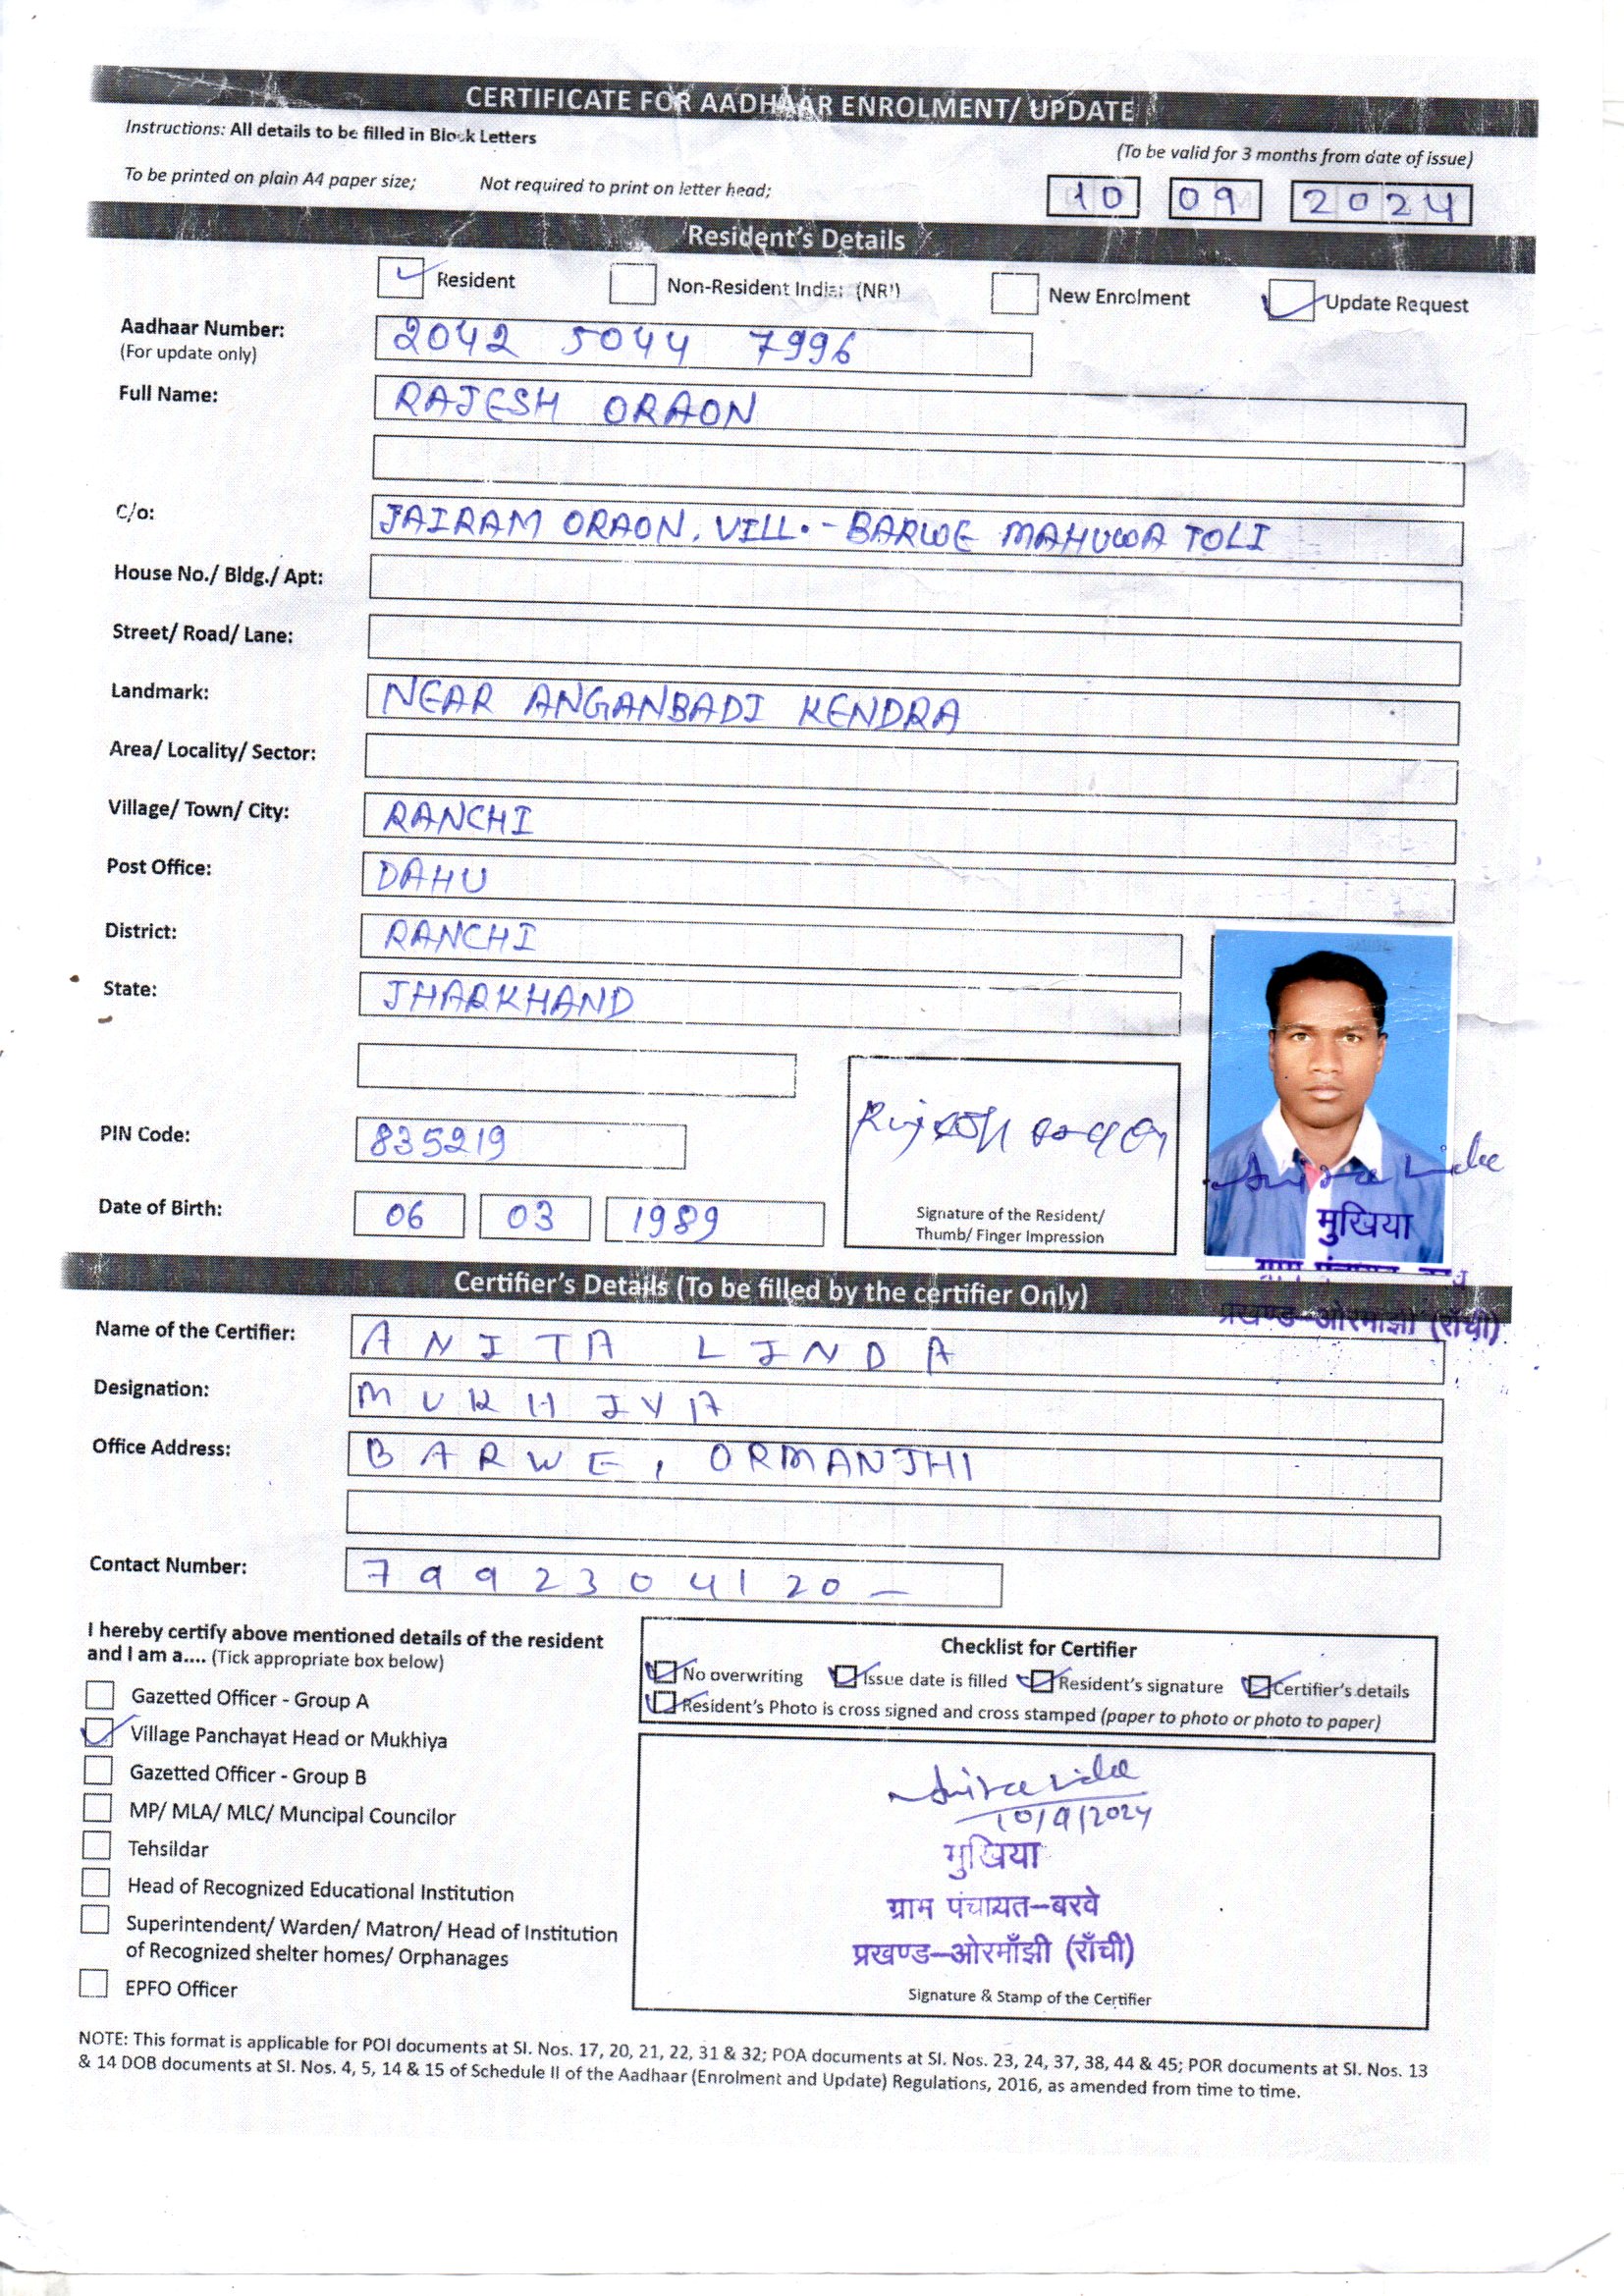 CERTIFICATE FOR AADHAAR ENROLMENT/ UPDATE
Instructions: All details to be filled in Block Letters
(To be valid for 3 months from date of issue)
To be printed on plain A4 paper size; Not required to print on letter head;
10 09 2024
Resident's Details
Resident Non-Resident Indian (NRI) New Enrolment Update Request
Aadhaar Number: 2042 5044 7996
(For update only)
Full Name: RAJESH ORAON
C/o: JAIRAM ORAON. VILL.- BARWE MAHUWA TOLI
House No./ Bldg./ Apt:
Street/ Road/ Lane:
Landmark: NEAR ANGANBADI KENDRA
Area/ Locality/ Sector:
Village/ Town/ City: RANCHI
Post Office: DAHU
District: RANCHI
State: JHARKHAND
PIN Code: 835219
Date of Birth: 06 03 1989
Signature of the Resident/
Thumb/ Finger Impression
मुखिया
प्रखण्ड-ओरमाँझी (राँची)
Certifier's Details (To be filled by the certifier Only)
Name of the Certifier: ANITA LINDA
Designation: MUKHIYA
Office Address: BARWE, ORMANJHI
Contact Number: 7992304120 -
I hereby certify above mentioned details of the resident
and I am a.... (Tick appropriate box below)
Gazetted Officer - Group A
Village Panchayat Head or Mukhiya
Gazetted Officer - Group B
MP/ MLA/ MLC/ Muncipal Councilor
Tehsildar
Head of Recognized Educational Institution
Superintendent/ Warden/ Matron/ Head of Institution
of Recognized shelter homes/ Orphanages
EPFO Officer
Checklist for Certifier
No overwriting Issue date is filled Resident's signature Certifier's details
Resident's Photo is cross signed and cross stamped (paper to photo or photo to paper)
10/9/2024
मुखिया
ग्राम पंचायत-बरवे
प्रखण्ड-ओरमाँझी (राँची)
Signature & Stamp of the Certifier
NOTE: This format is applicable for POI documents at SI. Nos. 17, 20, 21, 22, 31 & 32; POA documents at SI. Nos. 23, 24, 37, 38, 44 & 45; POR documents at SI. Nos. 13
& 14 DOB documents at SI. Nos. 4, 5, 14 & 15 of Schedule II of the Aadhaar (Enrolment and Update) Regulations, 2016, as amended from time to time.